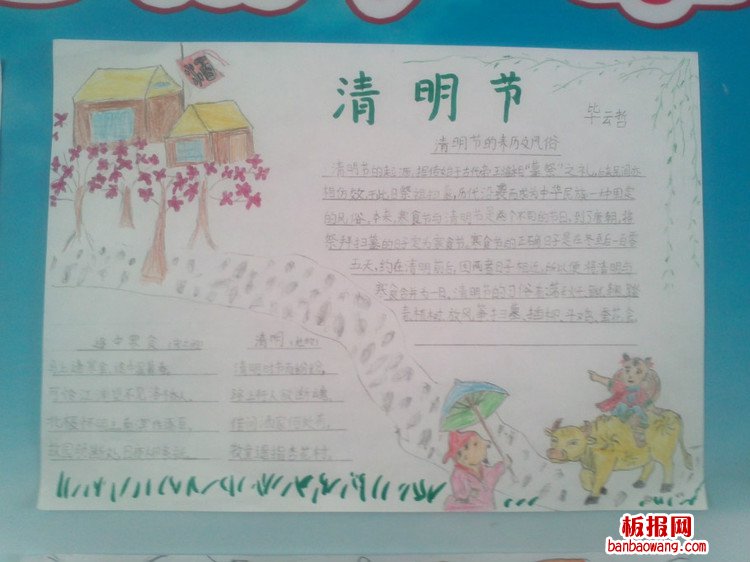 清明节
毕云哲
清明节的来历及风俗
清明节的起源,据传始于古代帝王将相"墓祭"之礼,后来民间亦
相仿效,于此日祭祖扫墓,历代沿袭而成为中华民族一种固定
的风俗。本来,寒食节与清明节是两个不同的节日,到了唐朝,将
祭拜扫墓的日子定为寒食节。寒食节的正确日子是在冬至后一百零
五天,约在清明前后,因两者日子相近,所以便将清明与
寒食合并为一日。清明节的习俗有荡秋千、蹴鞠、踏
青、植树、放风筝、扫墓、插柳、斗鸡、
途中寒食
马上逢寒食,途中属暮春。
可怜江浦望,不见洛桥人。
北极怀明主,南溟作逐臣。
故园肠断处,日夜柳条新。
清明
清明时节雨纷纷,
路上行人欲断魂。
借问酒家何处有,
牧童遥指杏花村。
板报网
banbaowang.com